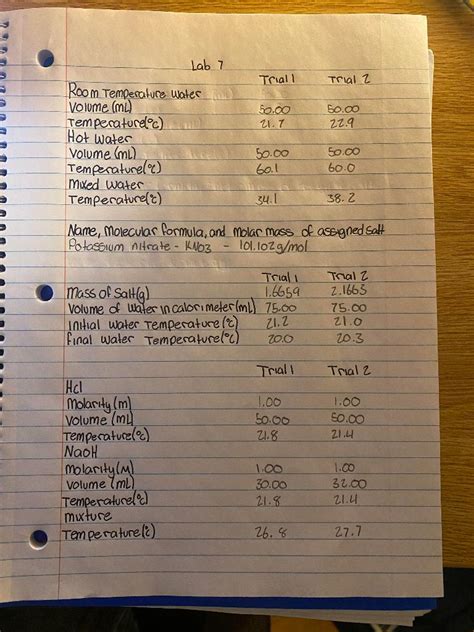 Lab 7
Trial 1 Trial 2
Room Temperature Water
Volume (mL) 50.00 50.00
Temperature(°c) 21.7 22.9
Hot Water
Volume (mL) 50.00 50.00
Temperature(°c) 60.1 60.0
Mixed Water
Temperature(°c) 34.1 38.2
Name, Molecular formula, and molar mass of assigned salt
Potassium nitrate - KNO3 - 101.102g/mol
Trial 1 Trial 2
Mass of Salt(g) 1.6659 2.1665
Volume of Water in calorimeter(mL) 75.00 75.00
Initial Water Temperature(°c) 21.2 21.0
Final Water Temperature(°c) 20.0 20.3
Trial 1 Trial 2
Hcl
Molarity(m) 1.00 1.00
Volume (mL) 50.00 50.00
Temperature(°c) 21.8 21.4
NaOH
Molarity(M) 1.00 1.00
Volume (mL) 30.00 32.00
Temperature(°c) 21.8 21.4
mixture
Temperature(°c) 26.8 27.7